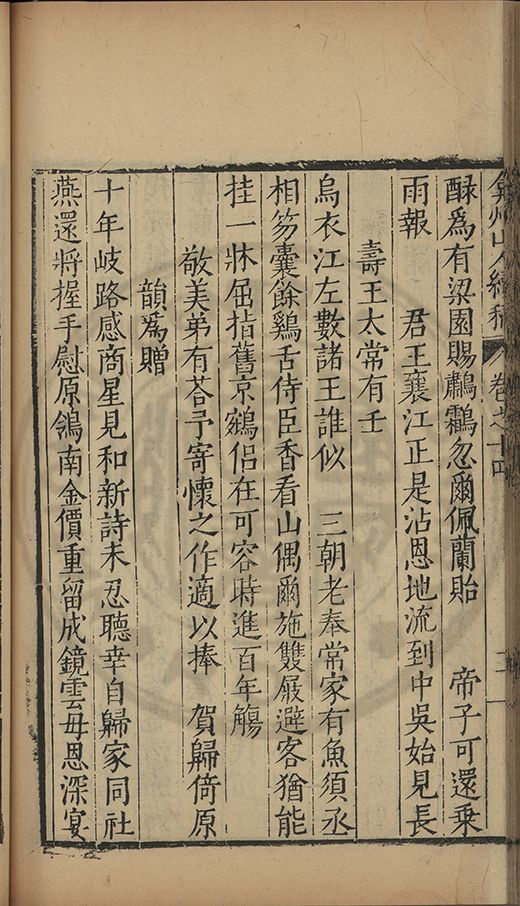 弇州山人續稿 卷之十四
醁爲有梁園賜鷫鸘忽爾佩蘭貽 帝子可還乗
雨報 君王襄江正是沾恩地流到中吳始見長
壽王太常有壬
烏衣江左數諸王誰似 三朝老奉常家有魚須丞
相笏囊餘鷄舌侍臣香看山偶爾施雙屐避客猶能
挂一牀屈指舊京鵷侶在可容時進百年觴
敬美弟有荅予寄懷之作適以捧 賀歸倚原
韻爲贈
十年岐路感商星見和新詩未忍聽幸自歸家同社
燕還將握手慰原鴒南金價重留成鏡雲母恩深宴